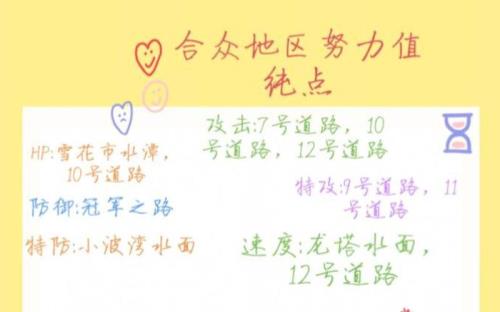 合众地区努力值
纯点
攻击:7号道路，10
号道路，12号道路
HP:雪花市水潭，
10号道路
特攻:9号道路，11
号道路
防御:冠军之路
特防:小波湾水面
速度:龙塔水面，
12号道路